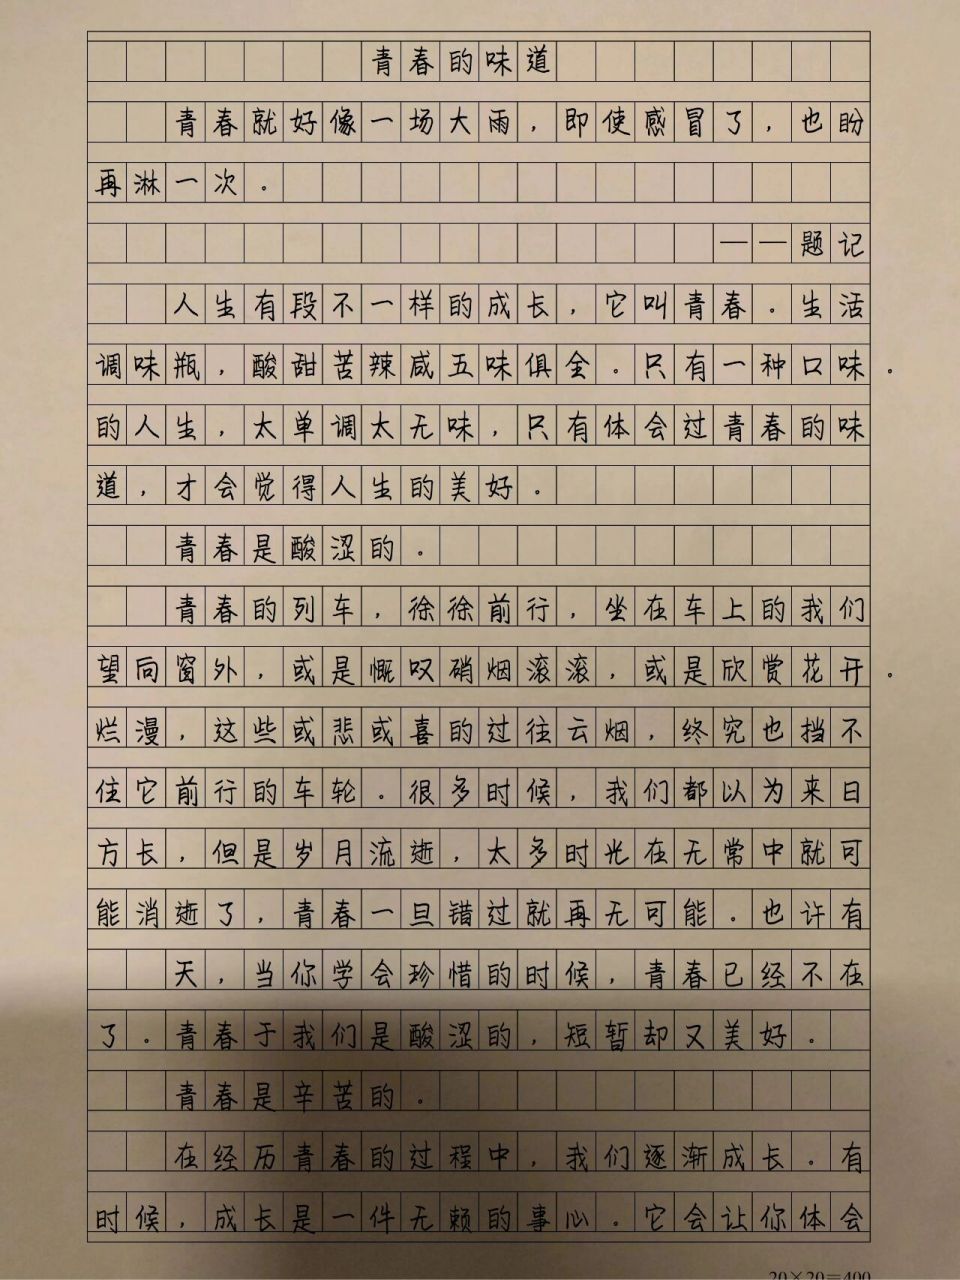 青春的味道
青春就好像一场大雨，即使感冒了，也盼
再淋一次。
——题记
人生有段不一样的成长，它叫青春。生活
调味瓶，酸甜苦辣咸五味俱全。只有一种口味。
的人生，太单调太无味，只有体会过青春的味
道，才会觉得人生的美好。
青春是酸涩的。
青春的列车，徐徐前行，坐在车上的我们
望向窗外，或是慨叹硝烟滚滚，或是欣赏花开。
烂漫，这些或悲或喜的过往云烟，终究也挡不
住它前行的车轮。很多时候，我们都以为来日
方长，但是岁月流逝，太多时光在无常中就可
能消逝了，青春一旦错过就再无可能。也许有
天，当你学会珍惜的时候，青春已经不在
了。青春于我们是酸涩的，短暂却又美好。
青春是辛苦的。
在经历青春的过程中，我们逐渐成长。有
时候，成长是一件无赖的事心。它会让你体会
20×20=400